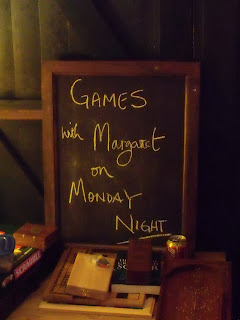 GAMES
with Margaret
on
MONDAY
NIGHT